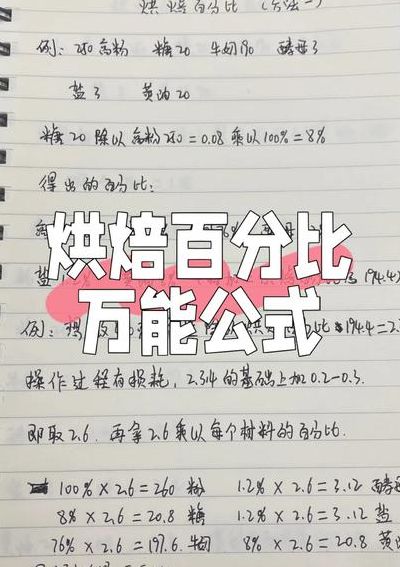 烘焙百分比（方法一）
例：250高粉 糖20 牛奶190 酵母3
盐3 黄油20
糖20除以高粉250=0.08乘以100%=8%
得出的百分比：
烘焙百分比
万能公式
盐1.2% 194.4%
例： 194.4=2.
操作过程有损耗，2.314的基础上加0.2-0.3.
即取2.6.再拿2.6乘以每个材料的百分比.
100%×2.6=260 粉 1.2%×2.6=3.12 酵母
8%×2.6=20.8 糖 1.2%×2.6=3.12 盐
76%×2.6=197.6.牛奶 8%×2.6=20.8 黄油